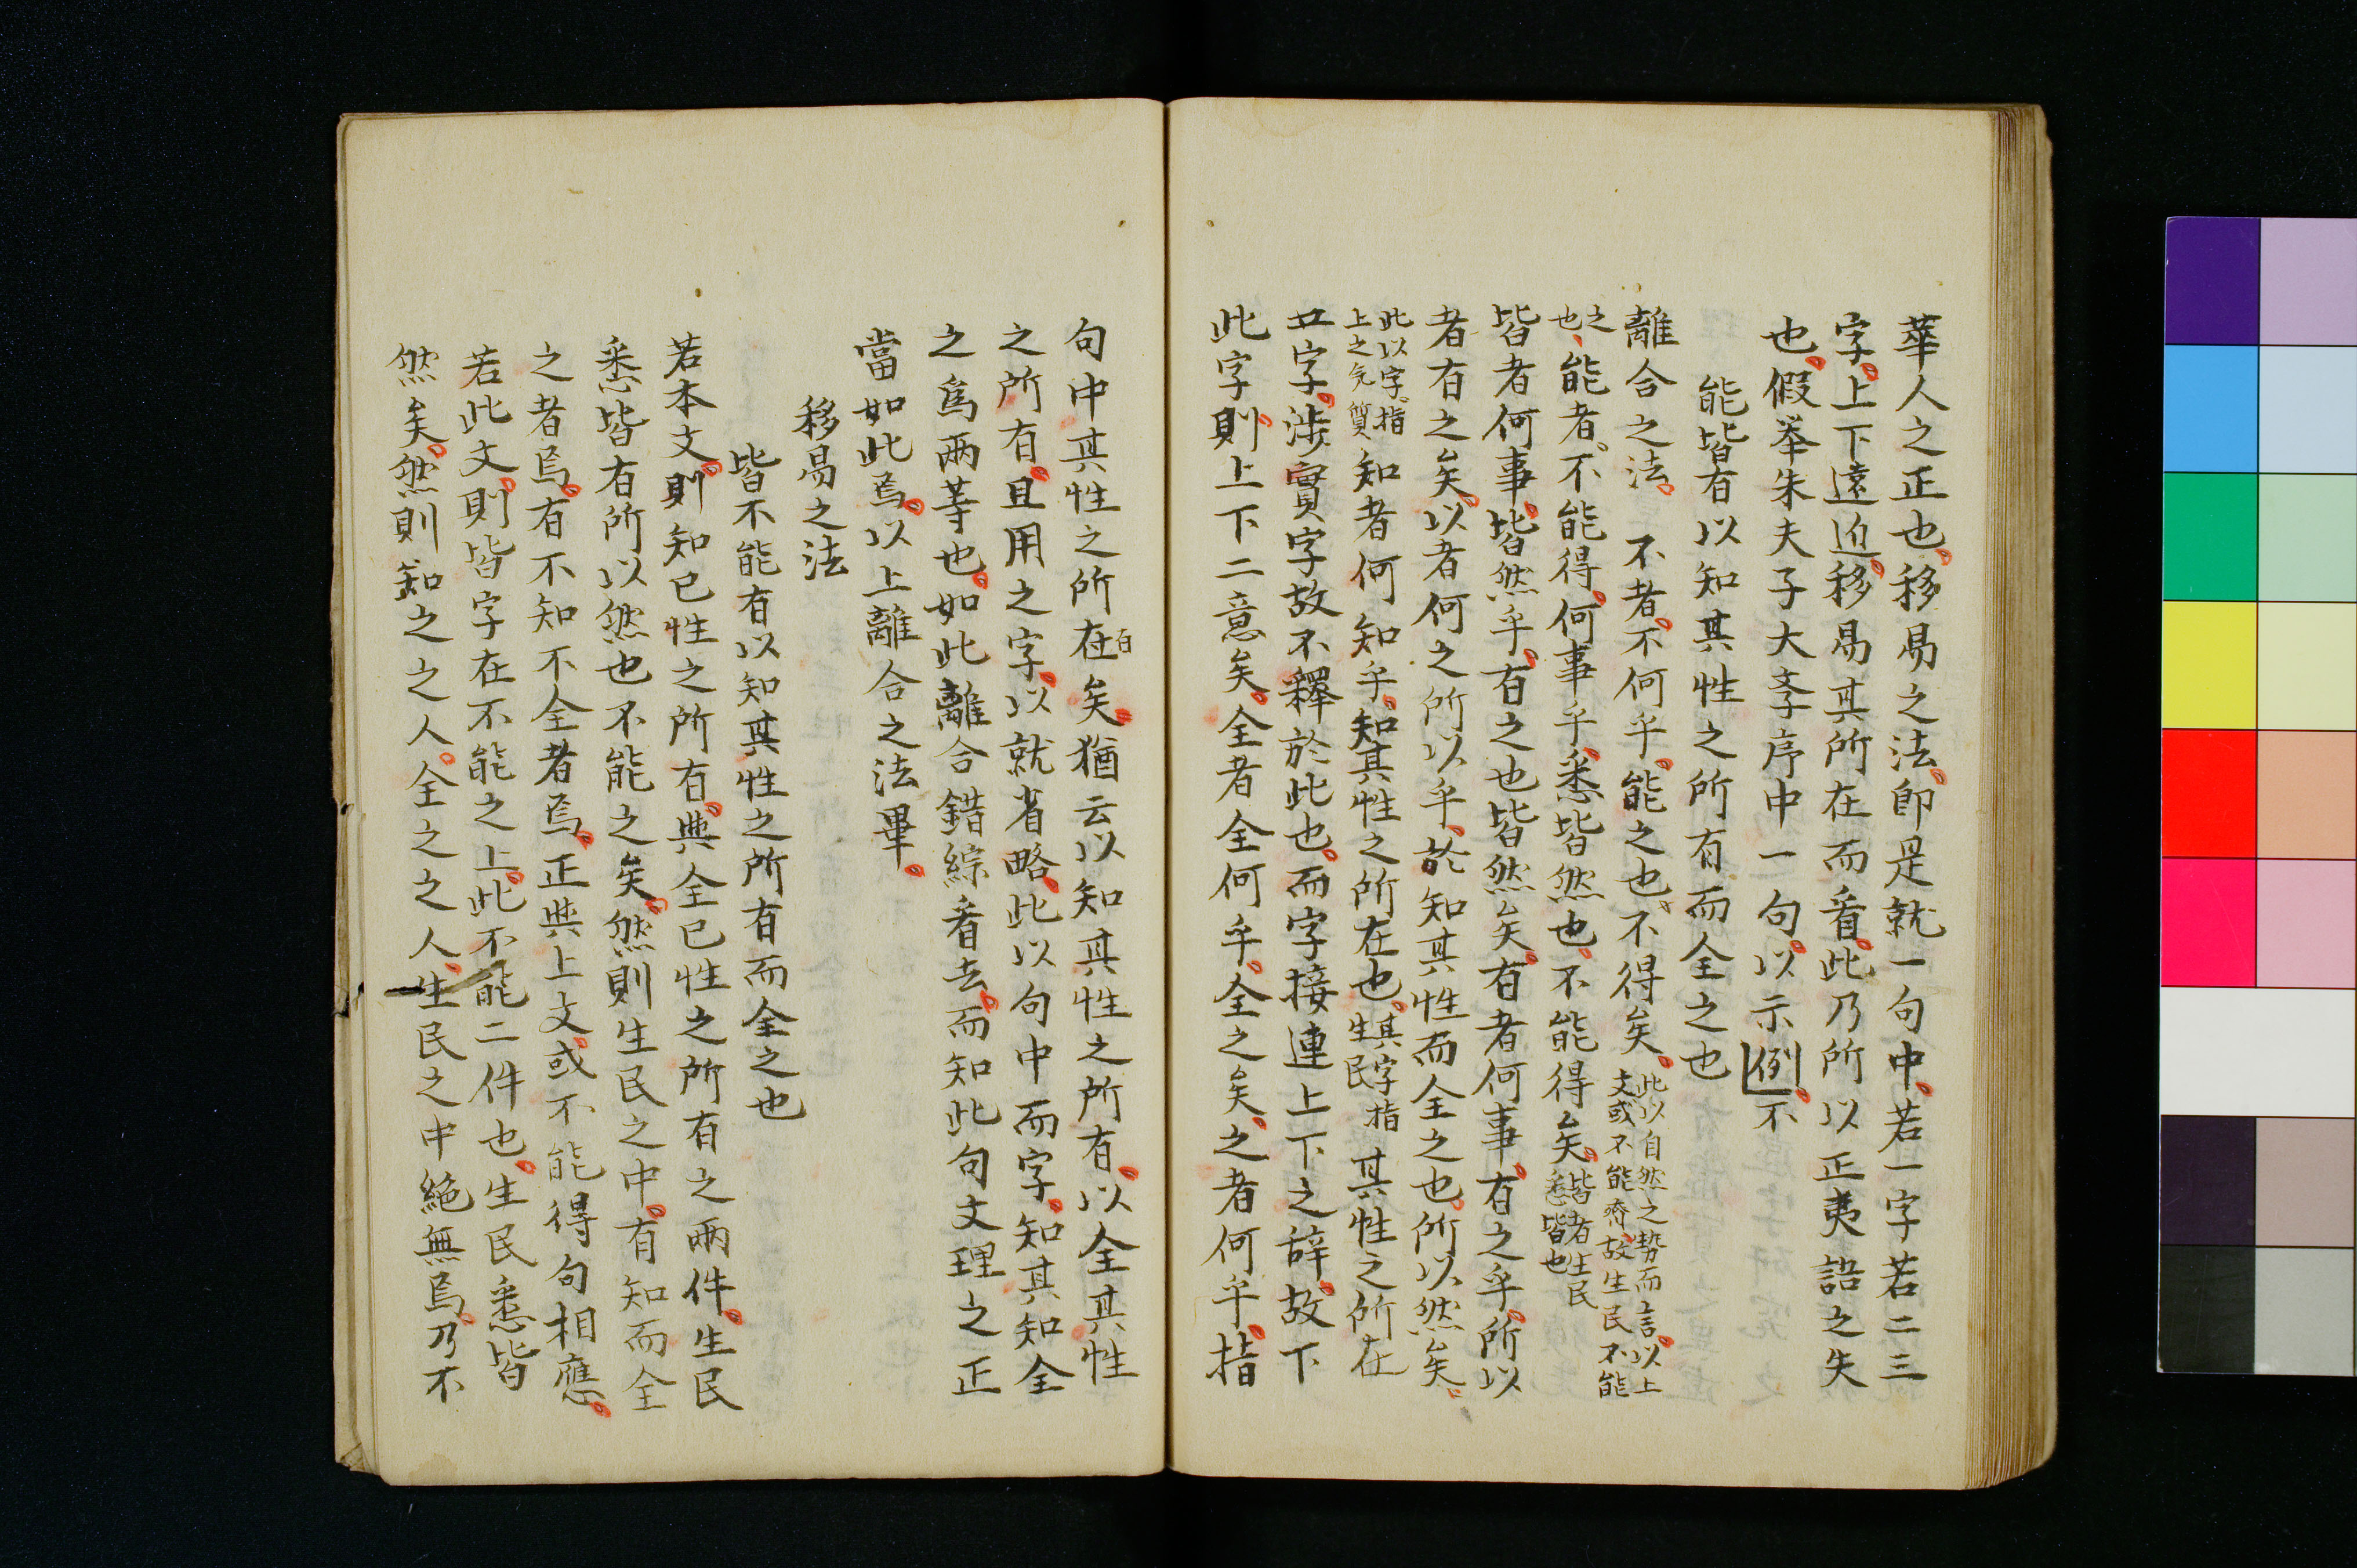 華人之正也移易之法即是就一句中若一字若二三
字上下遠近移易其所在而看此乃所以正夷語之失
也假举朱夫子大李序中一句以示例不
能皆有以知其性之所有而全之也
離合之法不者不何乎能之也不得矣此以自然之势而言以上
文或不能齊故生民不能
之也能者不能得何事乎悉皆然也不能得矣皆者生民
悉皆也
皆者何事皆然乎有之也皆然矣有者何事有之乎所以
者有之矣以者何之所以乎於知其性而全之也所以然矣
此以字指
上之气質知者何知乎知其性之所在也其字指
生民其性之所在
㐀字涉實字故不釋於此也而字接連上下之辞故下
此字則上下二意矣全者全何乎全之矣之者何乎指
句中其性之所在有矣猶云以知其性之所有以全其性
之所有且用之字以就省略此以句中而字知其知全
之爲两等也如此離合錯綜看去而知此句文理之正
當如此焉以上離合之法畢
移易之法
皆不能有以知其性之所有而全之也
若本文則知已性之所有與全已性之所有之两件生民
悉皆有所以然也不能之矣然則生民之中有知而全
之者焉有不知不全者焉正與上文或不能得句相應
若此文則皆字在不能之上此不能二件也生民悉皆
然矣然則知之之人全之之人生民之中絶無焉乃不